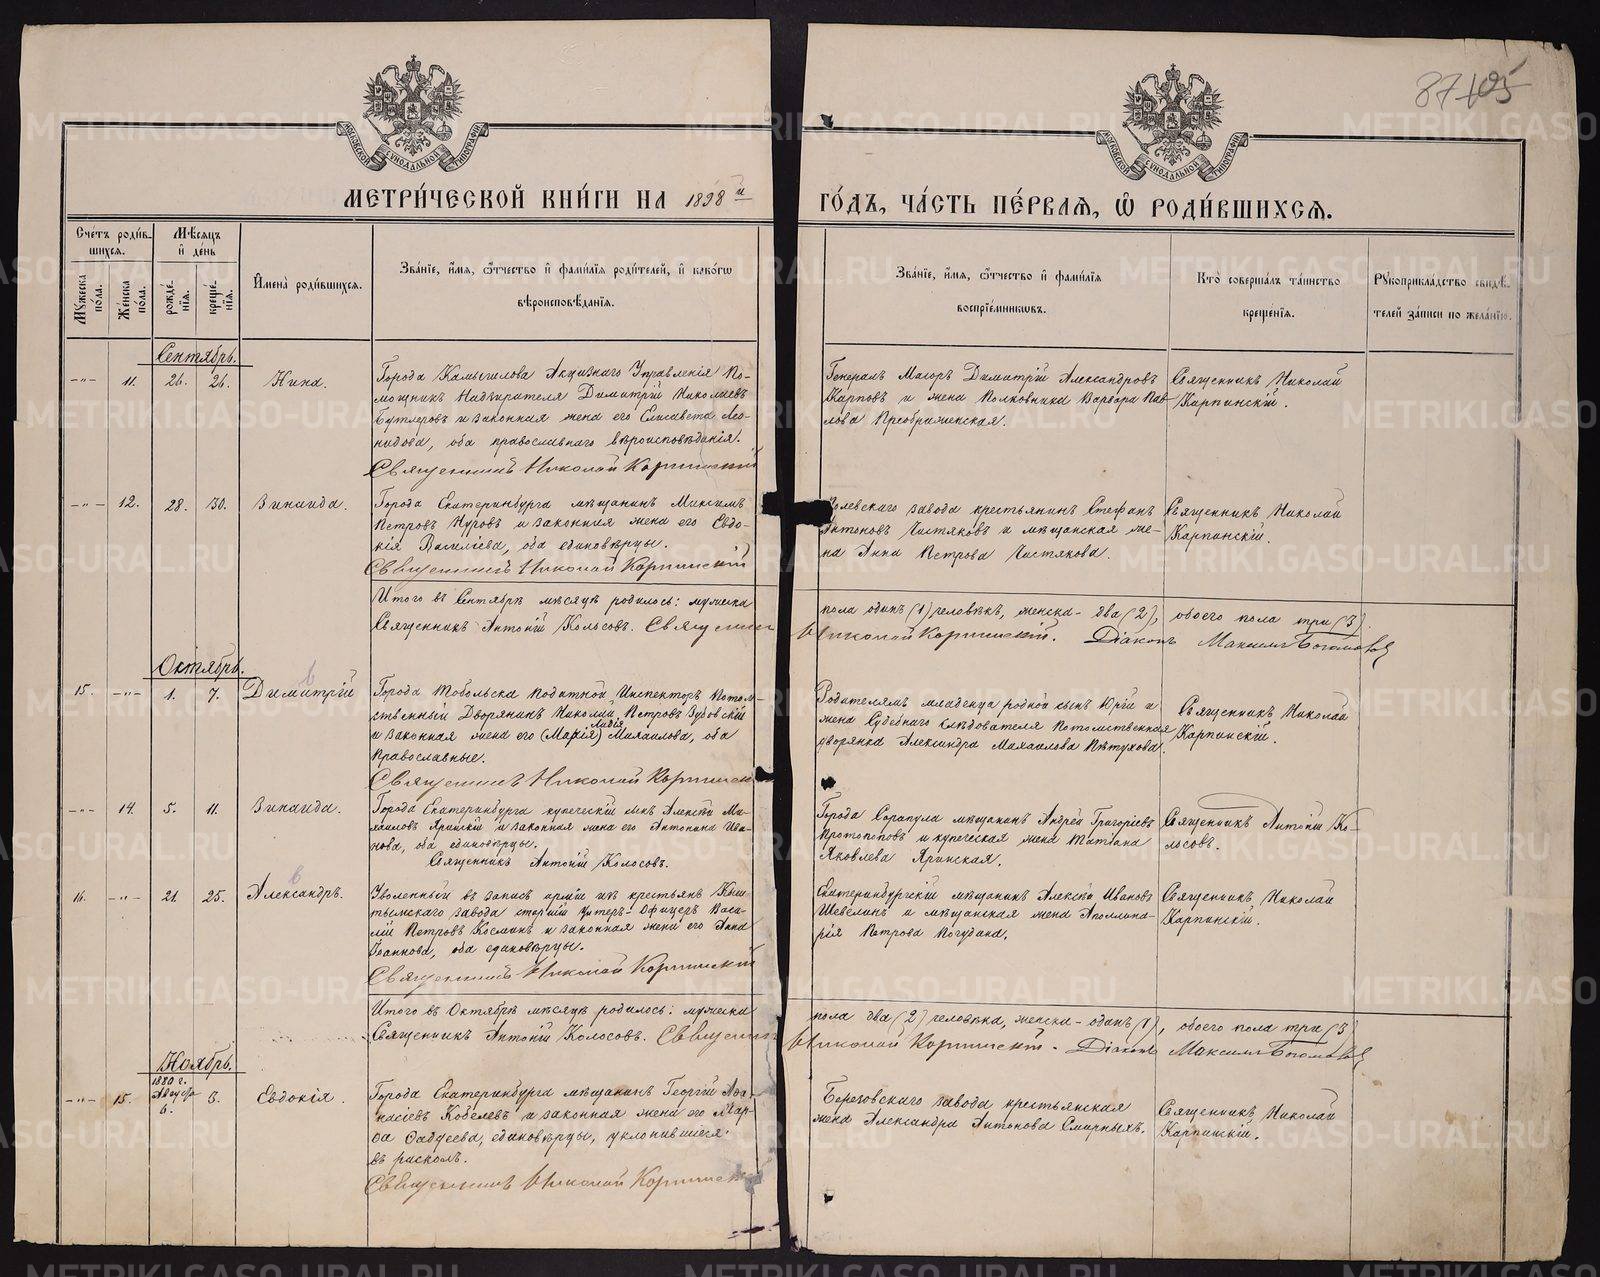 87 105
МОСКОВСКОЙ СѴНОДАЛЬНОЙ ТИПОГРАФІИ
МОСКОВСКОЙ СѴНОДАЛЬНОЙ ТИПОГРАФІИ
МЕТРИ́ЧЕСКОЙ КНИ́ГИ НА 1898 й
ГО́ДЪ, ЧА́СТЬ ПЕ́РВАЯ, Ѡ РОДИ́ВШИХСЯ.
Сче́тъ роди́в-
шихся.
Мѣ́сяцъ
и де́нь
Мꙋжеска
по́ла.
Же́нска
по́ла.
рожде́-
нїя.
креще́-
нїя.
И҆мена̀ роди́вшихся.
Зва́нїе, и҆́мя, ѻ҆́тчество и҆ фами́лїя роди́телей, и҆ како́гѡ
вѣроисповѣ́данїя.
Зва́нїе, и҆́мя, ѻ҆́тчество и҆ фами́лїя
воспрїе́мникѡвъ.
Кто̀ соверша́лъ та́инство
креще́нїя.
Рꙋкоприкла́дство свидѣ́-
телей за́писи по жела́нїю.
Сентябрь.
-"- 11. 26. 26. Нина.
Города Камышлова Акцизнаго Управленія По-
мощникъ Надзирателя Димитрій Николаевъ
Бутлеровъ и законная жена его Елисавета Лео-
нидова, оба православнаго вѣроисповѣданія.
Священникъ Николай Карпинскій
Генералъ Маіоръ Димитрій Александровъ
Карповъ и жена Полковника Варвара Пав-
лова Преображенская.
Священникъ Николай
Карпинскій.
-"- 12. 28. 30. Зинаида.
Города Екатеринбурга мѣщанинъ Максимъ
Петровъ Нуровъ и законная жена его Евдо-
кія Василіева, оба единовѣрцы.
Священникъ Николай Карпинскій
Полевскаго завода крестьянинъ Стефанъ
Антоновъ Чистяковъ и мѣщанская же-
на Анна Петрова Чистякова.
Священникъ Николай
Карпинскій.
Итого въ Сентябрѣ мѣсяцѣ родилось: мужеска
пола одинъ (1) человѣкъ, женска - два (2), обоего пола три (3)
Священникъ Антоній Колосовъ. Священникъ
Николай Карпинскій. Діаконъ Максимъ Богомолов
Октябрь.
15. -"- 1. 7. Димитрій
Города Тобольска Податной Инспекторъ Потом-
ственный Дворянинъ Николай Петровъ Зубовскій
Лидія
и законная жена его (Марія) Михаилова, оба
православные.
Священникъ Николай Карпинск
Родителямъ младенца родной сынъ Юрій и
жена Судебнаго слѣдователя Потомственная
дворянка Александра Михаилова Пѣтухова.
Священникъ Николай
Карпинскій.
-"- 14. 5. 11. Зинаида.
Города Екатеринбурга купеческій сынъ Алексѣй Ми-
хаиловъ Яринскій и законная жена его Антонина Ива-
нова, оба единовѣрцы.
Священникъ Антоній Колосовъ.
Города Сарапула мѣщанинъ Андрей Григорьевъ
Протопоповъ и купеческая жена Татіана
Яковлева Яринская.
Священникъ Антоній Ко-
лосовъ.
16. -"- 21. 25. Александръ.
Уволенный въ запасъ арміи изъ крестьянъ Кыш-
тымскаго завода старшій Унтеръ-Офицеръ Васи-
лій Петровъ Косминъ и законная жена его Анна
Іоаннова, оба единовѣрцы.
Священникъ Николай Карпинскій
Екатеринбургскій мѣщанинъ Алексѣй Ивановъ
Шевелинъ и мѣщанская жена Аполлина-
рія Петрова Погудина.
Священникъ Николай
Карпинскій.
Итого въ Октябрѣ мѣсяцѣ родилось: мужеска
пола два (2) человѣка, женска - одинъ (1), обоего пола три (3
Священникъ Антоній Колосовъ. Священник
Николай Карпинскій. Діаконъ Максимъ Богомолов
Ноябрь.
1880 г.
-"- 15. Августа 8. Евдокія.
6.
Города Екатеринбурга мѣщанинъ Георгій Афа-
насіевъ Кобелевъ и законная жена его Мар-
ѳа Ѳаддеева, единовѣрцы, уклонившіеся
въ расколъ.
Священникъ Николай Карпинск
Березовскаго завода крестьянская
жена Александра Антонова Смирныхъ.
Священникъ Николай
Карпинскій.
METRIKI.GASO-URAL.RU